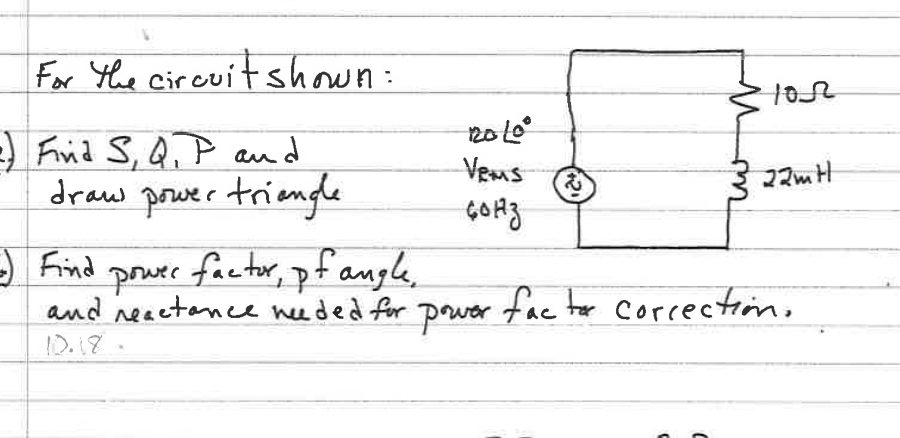 For the circuit shown:
10Ω
120∠0°
) Find S, Q, P and
VRMS
22mH
draw power triangle
60Hz
) Find power factor, pf angle,
and reactance needed for power factor correction.
10.18.